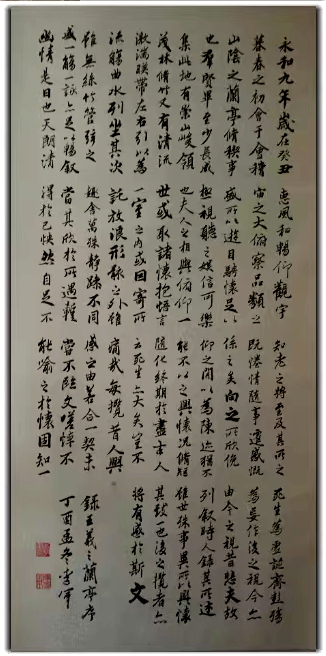 永和九年歲在癸丑
暮春之初會于會稽
山陰之蘭亭脩稧事
也羣賢畢至少長咸
集此地有崇山峻領
茂林脩竹又有清流
激湍暎帶左右引以為
流觴曲水列坐其次
雖無絲竹管弦之
盛一觴一詠亦足以暢敘
幽情是日也天朗清
惠風和暢仰觀宇
宙之大俯察品類之
盛所以遊目騁懷足以
極視聽之娛信可樂
也夫人之相與俯仰一
世或取諸懷抱悟言
一室之內或因寄所
託放浪形骸之外雖
趣舍萬殊靜躁不同
當其欣於所遇輒
得於己怏然自足不
知老之將至及其所之
既惓情隨事遷感慨
係之矣向之所欣俛
仰之閒以為陳迹猶不
能不以之興懷況脩短
隨化終期於盡古人
云死生亦大矣豈不
痛哉每攬昔人興
感之由若合一契未
嘗不臨文嗟悼不
能喻之於懷固知一
死生為虛誕齊彭殤
為妄作後之視今亦
由今之視昔悲夫故
列敘時人錄其所述
雖世殊事異所以興懷
其致一也後之攬者亦
將有感於斯文
錄王羲之蘭亭序
丁酉孟冬李軍